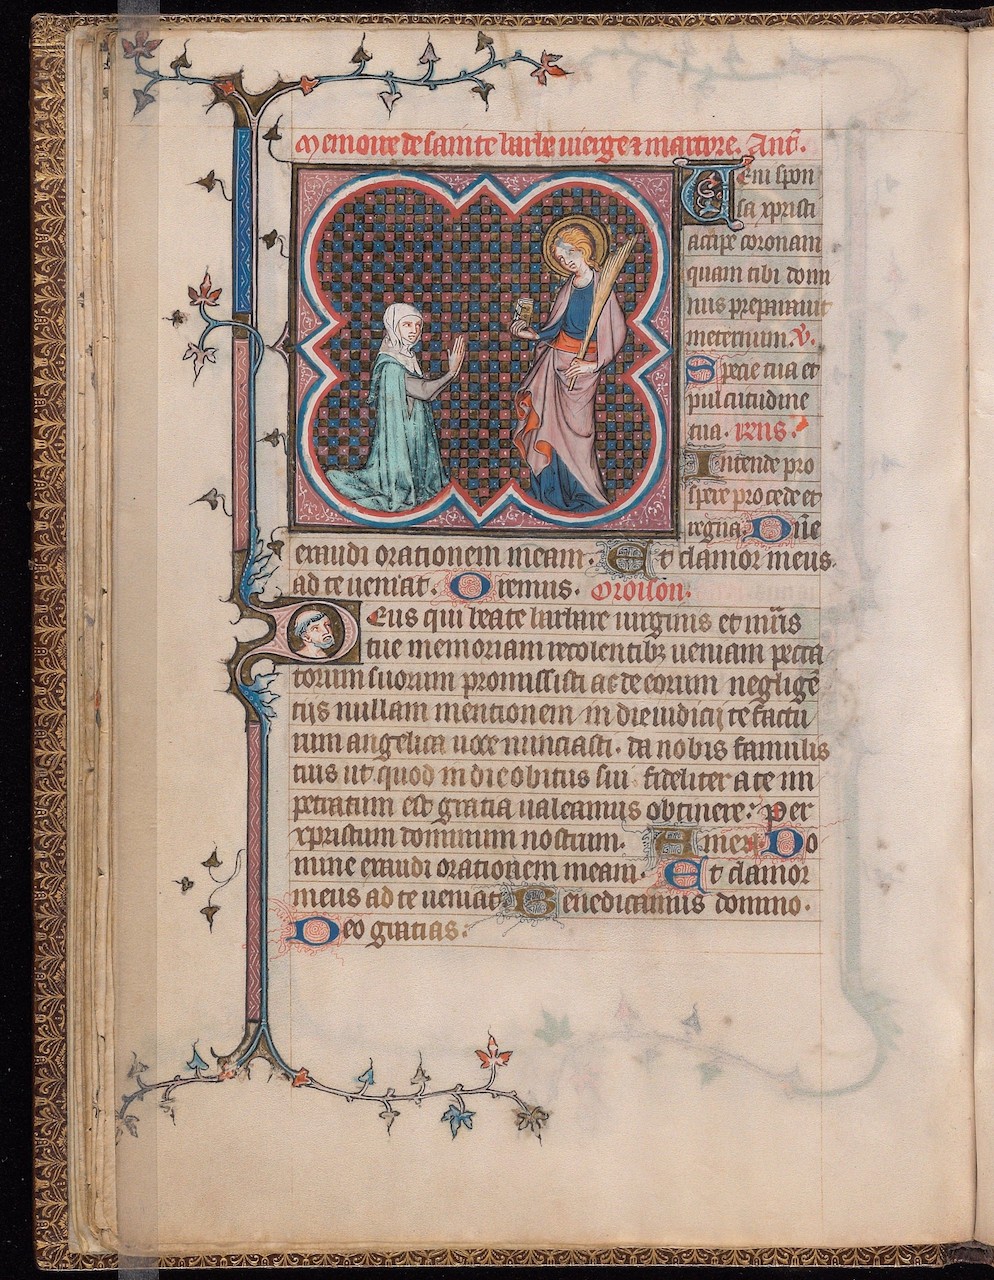 Memoire de sainte barbe uierge ⁊ martyre. Ant̃.
Ueni spon
sa xpristi
accipe coronam
quam tibi domi
nus preparauit
ineternum. ℣.
Specie tua et
pulcritudine
tua. R̃ns.
Intende pro
spere procede et
regna. Dñe
exaudi orationem meam. Et clamor meus
ad te ueniat. Oremus. Oroison.
Deus qui beate barbare uirginis et mr̃is
tue memoriam recolentibꝫ ueniam pecca
torum suorum promissisti ac de eorum negligẽ
tijs nullam mentionem in die iudicij te factu
rum angelica uoce nunciasti. da nobis famulis
tuis ut quod in die obitus sui fideliter a te im
petratum est gratia ualeamus obtinere. Per
xpristum dominum nostrum. Amen. Do
mine exaudi orationem meam. Et clamor
meus ad te ueniat Benedicamus domino.
Deo gratias.